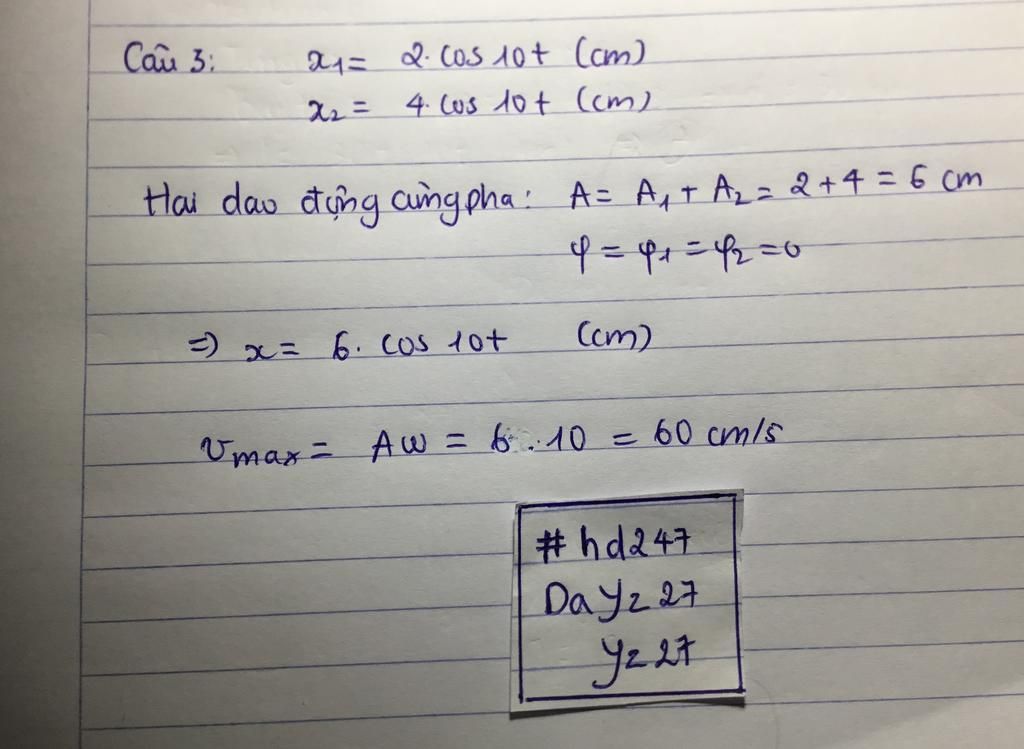 Câu 3: x₁ = 2. cos 10t (cm)
x₂ = 4. cos 10t (cm)
Hai dao động cùng pha: A = A₁ + A₂ = 2 + 4 = 6 cm
φ = φ₁ = φ₂ = 0
=> x = 6. cos 10t (cm)
vmax = Aω = 6 . 10 = 60 cm/s
#hd247
DaYz27
Yz27